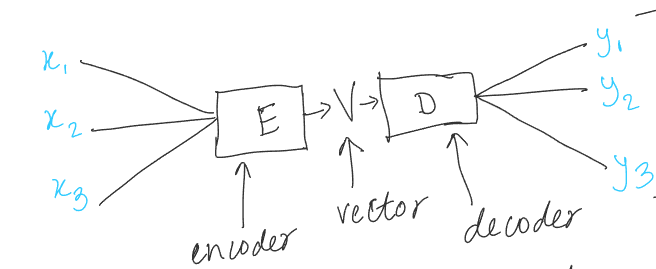 x₁
x₂
x₃
E
V
D
y₁
y₂
y₃
encoder
vector
decoder